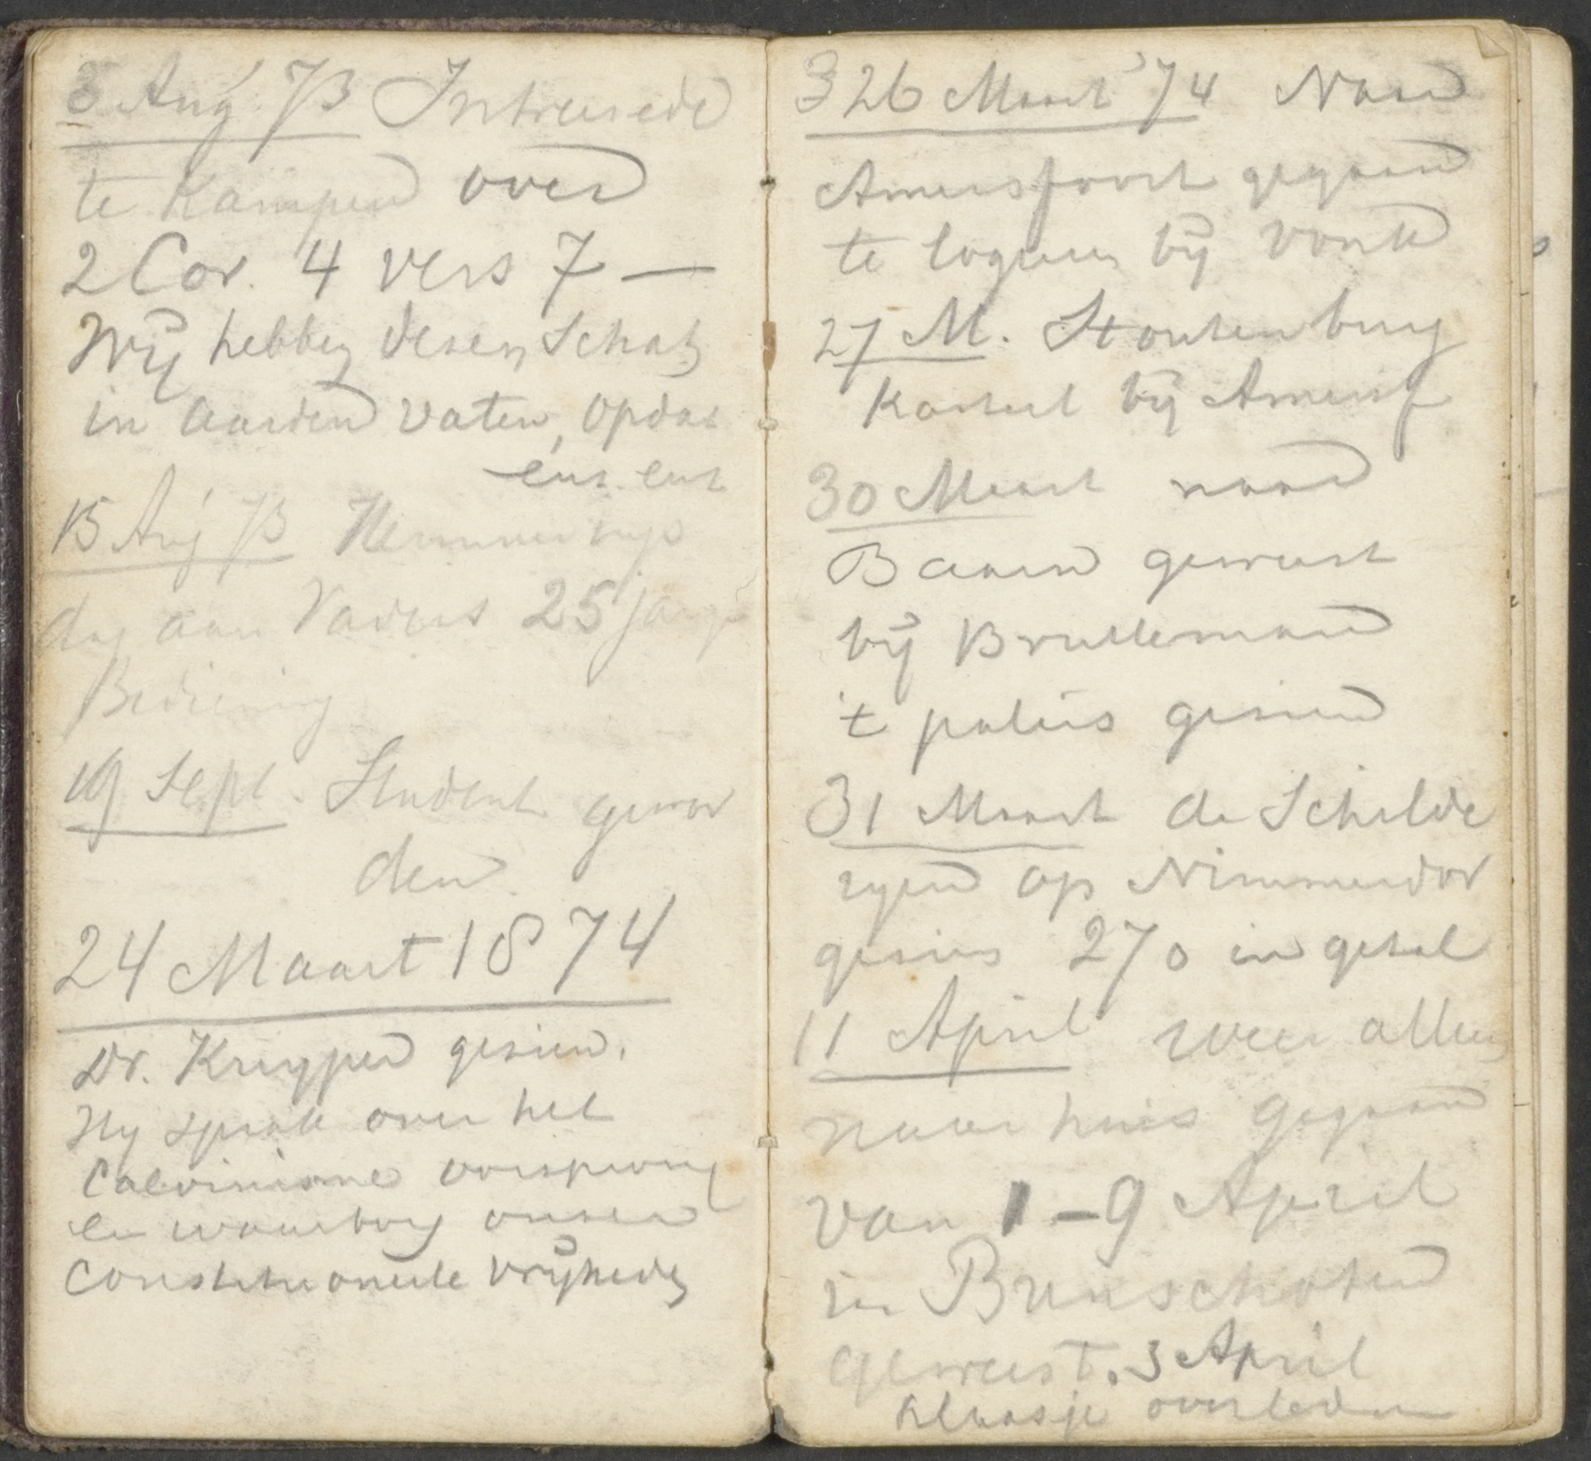 3 Aug. 73 Intreerede
te Kampen over
2 Cor. 4 vers 7 —
Wij hebben desen Schat
in aarden vaten, opdat
enz. enz
15 Aug 73 Herinnerings
dag aan Vaders 25 jarige
Bediening
19 Sept. Student gewor
den.
24 Maart 1874
Dr. Kuyper gesien.
Hy sprak over het
Calvinisme oorsprong
en waarborg onser
Constitutioneele vrijheden
26 Maart '74 Naar
Amersfoort gegaan
te logeren bij Vonk
27 M. Stoutenburg
Kasteel bij Amersf
30 Maart naar
Baarn geweest
bij Brulleman
't paleis gesien
31 Maart de Schilde
ryen op Nimmerdor
gesien 270 in getal
11 April weer alleen
naar huis gegaan
van 1-9 April
in Bunschoten
geweest. 3 April
Klaasje overleden